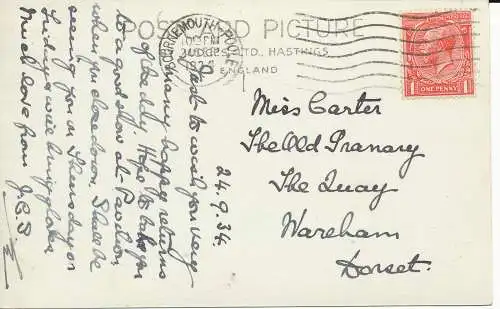 POSTCARD PICTURE
JUDGES LTD., HASTINGS
ENGLAND
BOURNEMOUTH POOLE
ONE PENNY
24.9.34.
Just to wish you very
many happy returns
of the day. Hope to take you
to a good show at Pavilion
when you close down. Shall be
seeing you on Thursday or
Friday as we bring
Much love from J.E.S.
Miss Carter
The Old Granary
The Quay
Wareham
Dorset.